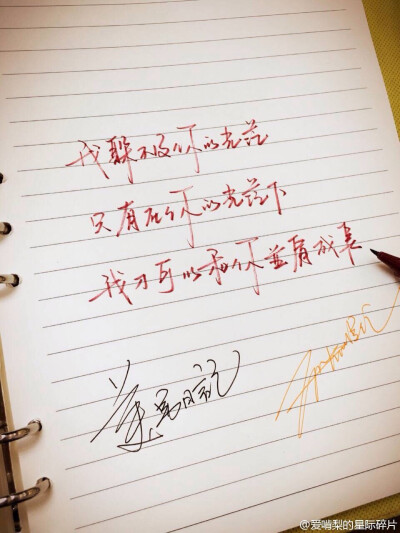 我躲不及你的光芒
只有在你的光芒下
我才可以和你並肩成長
@爱啃梨的星际碎片